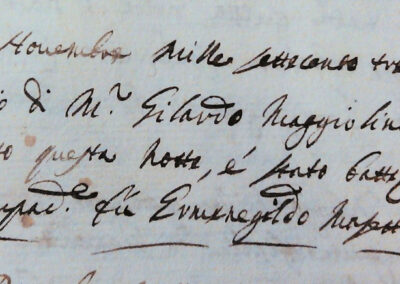 Novembre mille settecento tre
di M.r Gilardo Maggiolin
to questa notte, é stato batte
mpad.e fü Ermenegildo Masett